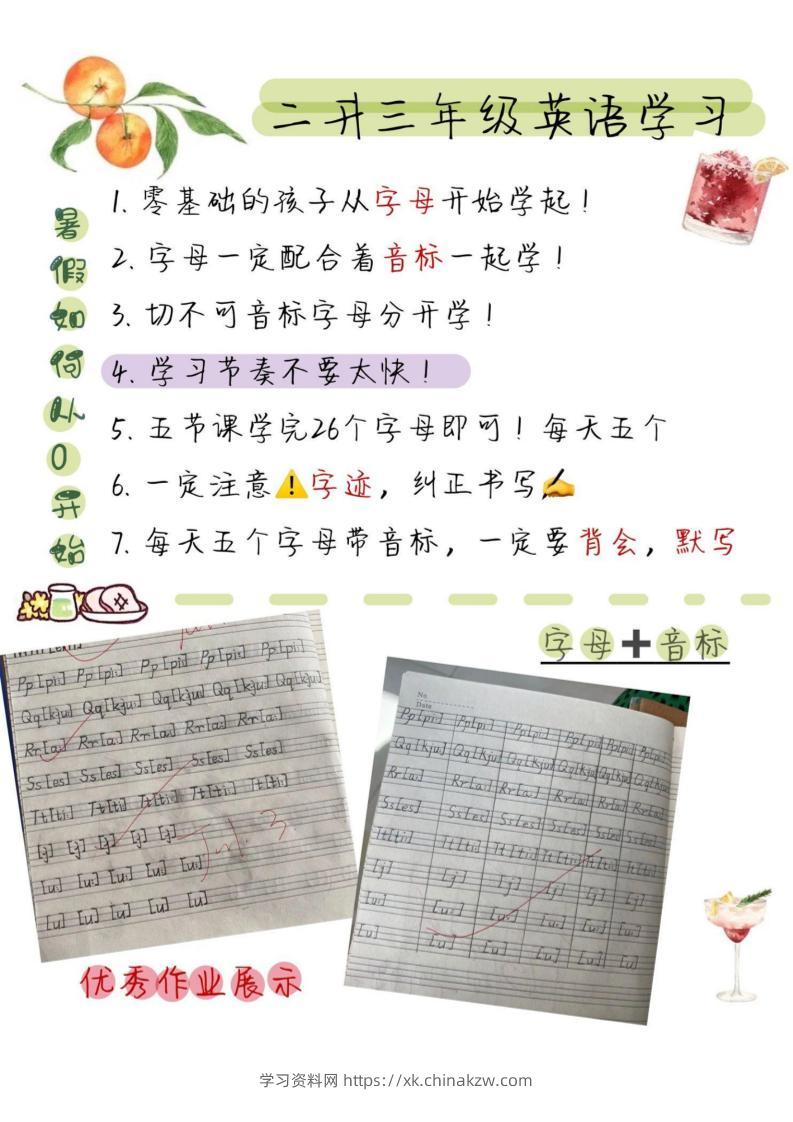 二升三年级英语学习
暑假如何从0开始
1. 零基础的孩子从字母开始学起！
2. 字母一定配合着音标一起学！
3. 切不可音标字母分开学！
4. 学习节奏不要太快！
5. 五节课学完26个字母即可！每天五个
6. 一定注意⚠️字迹，纠正书写✍️
7. 每天五个字母带音标，一定要背会，默写
字母➕音标
Pp[pi:] Pp[pi:] Pp[pi:] Pp[pi:] Pp[pi:]
Qq[kju:] Qq[kju:] Qq[kju:] Qq[kju:] Qq[kju:]
Rr[a:] Rr[a:] Rr[a:] Rr[a:] Rr[a:]
Ss[es] Ss[es] Ss[es] Ss[es] Ss[es]
Tt[ti:] Tt[ti:] Tt[ti:] Tt[ti:] Tt[ti:]
[j] [j] [j] [j] [j]
[u:] [u:] [u:] [u:] [u:]
[u] [u] [u] [u] [u]
No.
Date
Pp[pi:] Pp[pi:] Pp[pi:] Pp[pi:] Pp[pi:] Pp[pi:]
Qq[kju:] Qq[kju:] Qq[kju:] Qq[kju:] Qq[kju:] Qq[kju:]
Rr[a:] Rr[a:] Rr[a:] Rr[a:] Rr[a:] Rr[a:]
Ss[es] Ss[es] Ss[es] Ss[es] Ss[es] Ss[es]
Tt[ti:] Tt[ti:] Tt[ti:] Tt[ti:] Tt[ti:] Tt[ti:]
[j] [j] [j] [j] [j] [j]
[u:] [u:] [u:] [u:] [u:] [u:]
[u] [u] [u] [u] [u] [u]
优秀作业展示
学习资料网 https://xk.chinakzw.com